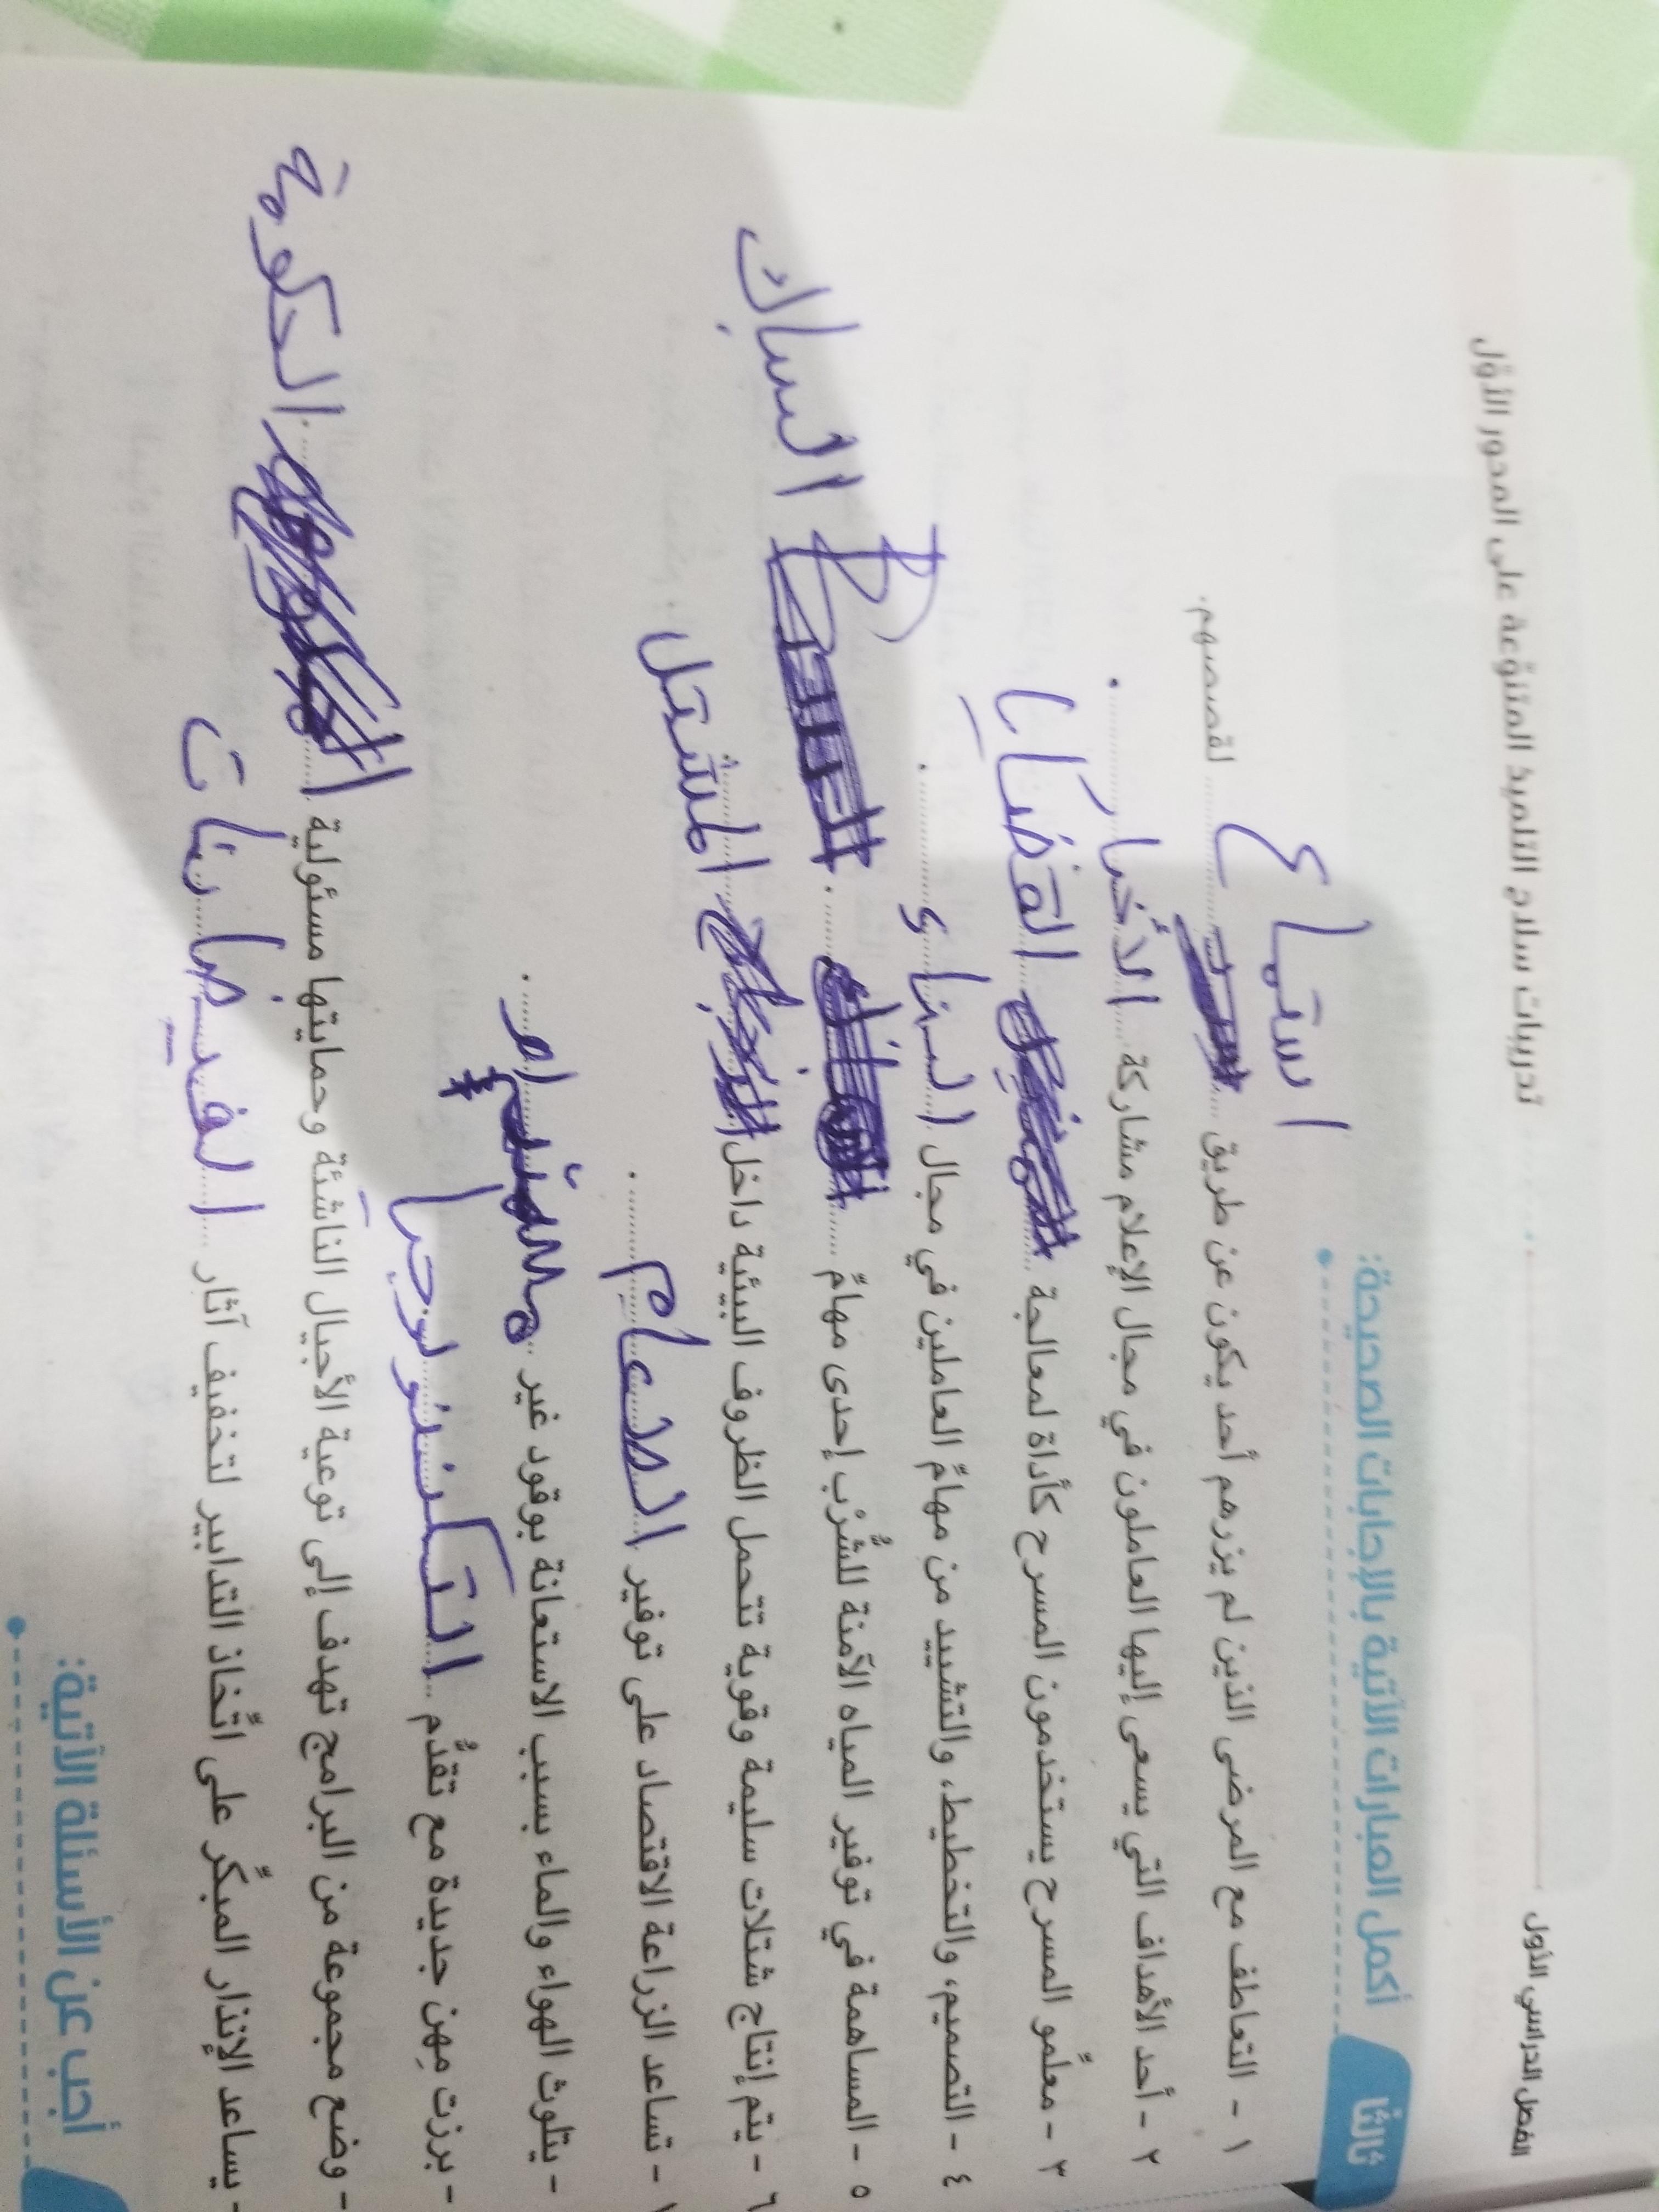 الفصل الدراسي الأول
تدريبات سلاح التلميذ المتنوعة على المحور الأول
ثالثًا
أكمل العبارات الآتية بالإجابات الصحيحة:
استماع
١ - التعاطف مع المرضى الذين لم يزرهم أحد يكون عن طريق ............ لقصصهم.
٢ - أحد الأهداف التي يسعى إليها العاملون في مجال الإعلام مشاركة الأخبار.
٣ - معلِّمو المسرح يستخدمون المسرح كأداة لمعالجة القضايا
٤ - التصميم، والتخطيط، والتشييد من مهامِّ العاملين في مجال البناء.
٥ - المساهمة في توفير المياه الآمنة للشُّرْب إحدى مهامِّ ............. السباك
٦ - يتم إنتاج شتلات سليمة وقوية تتحمل الظروف البيئية داخل المشتل
- تساعد الزراعة الاقتصاد على توفير الطعام.
- يتلوث الهواء والماء بسبب الاستعانة بوقود غير ............
- برزت مِهن جديدة مع تقدُّم التكنلوجيا
- وضع مجموعة من البرامج تهدف إلى توعية الأجيال الناشئة وحمايتها مسئولية ............ الحكومة
- يساعد الإنذار المبكِّر على اتِّخاذ التدابير لتخفيف آثار الفيضانات
أجب عن الأسئلة الآتية: